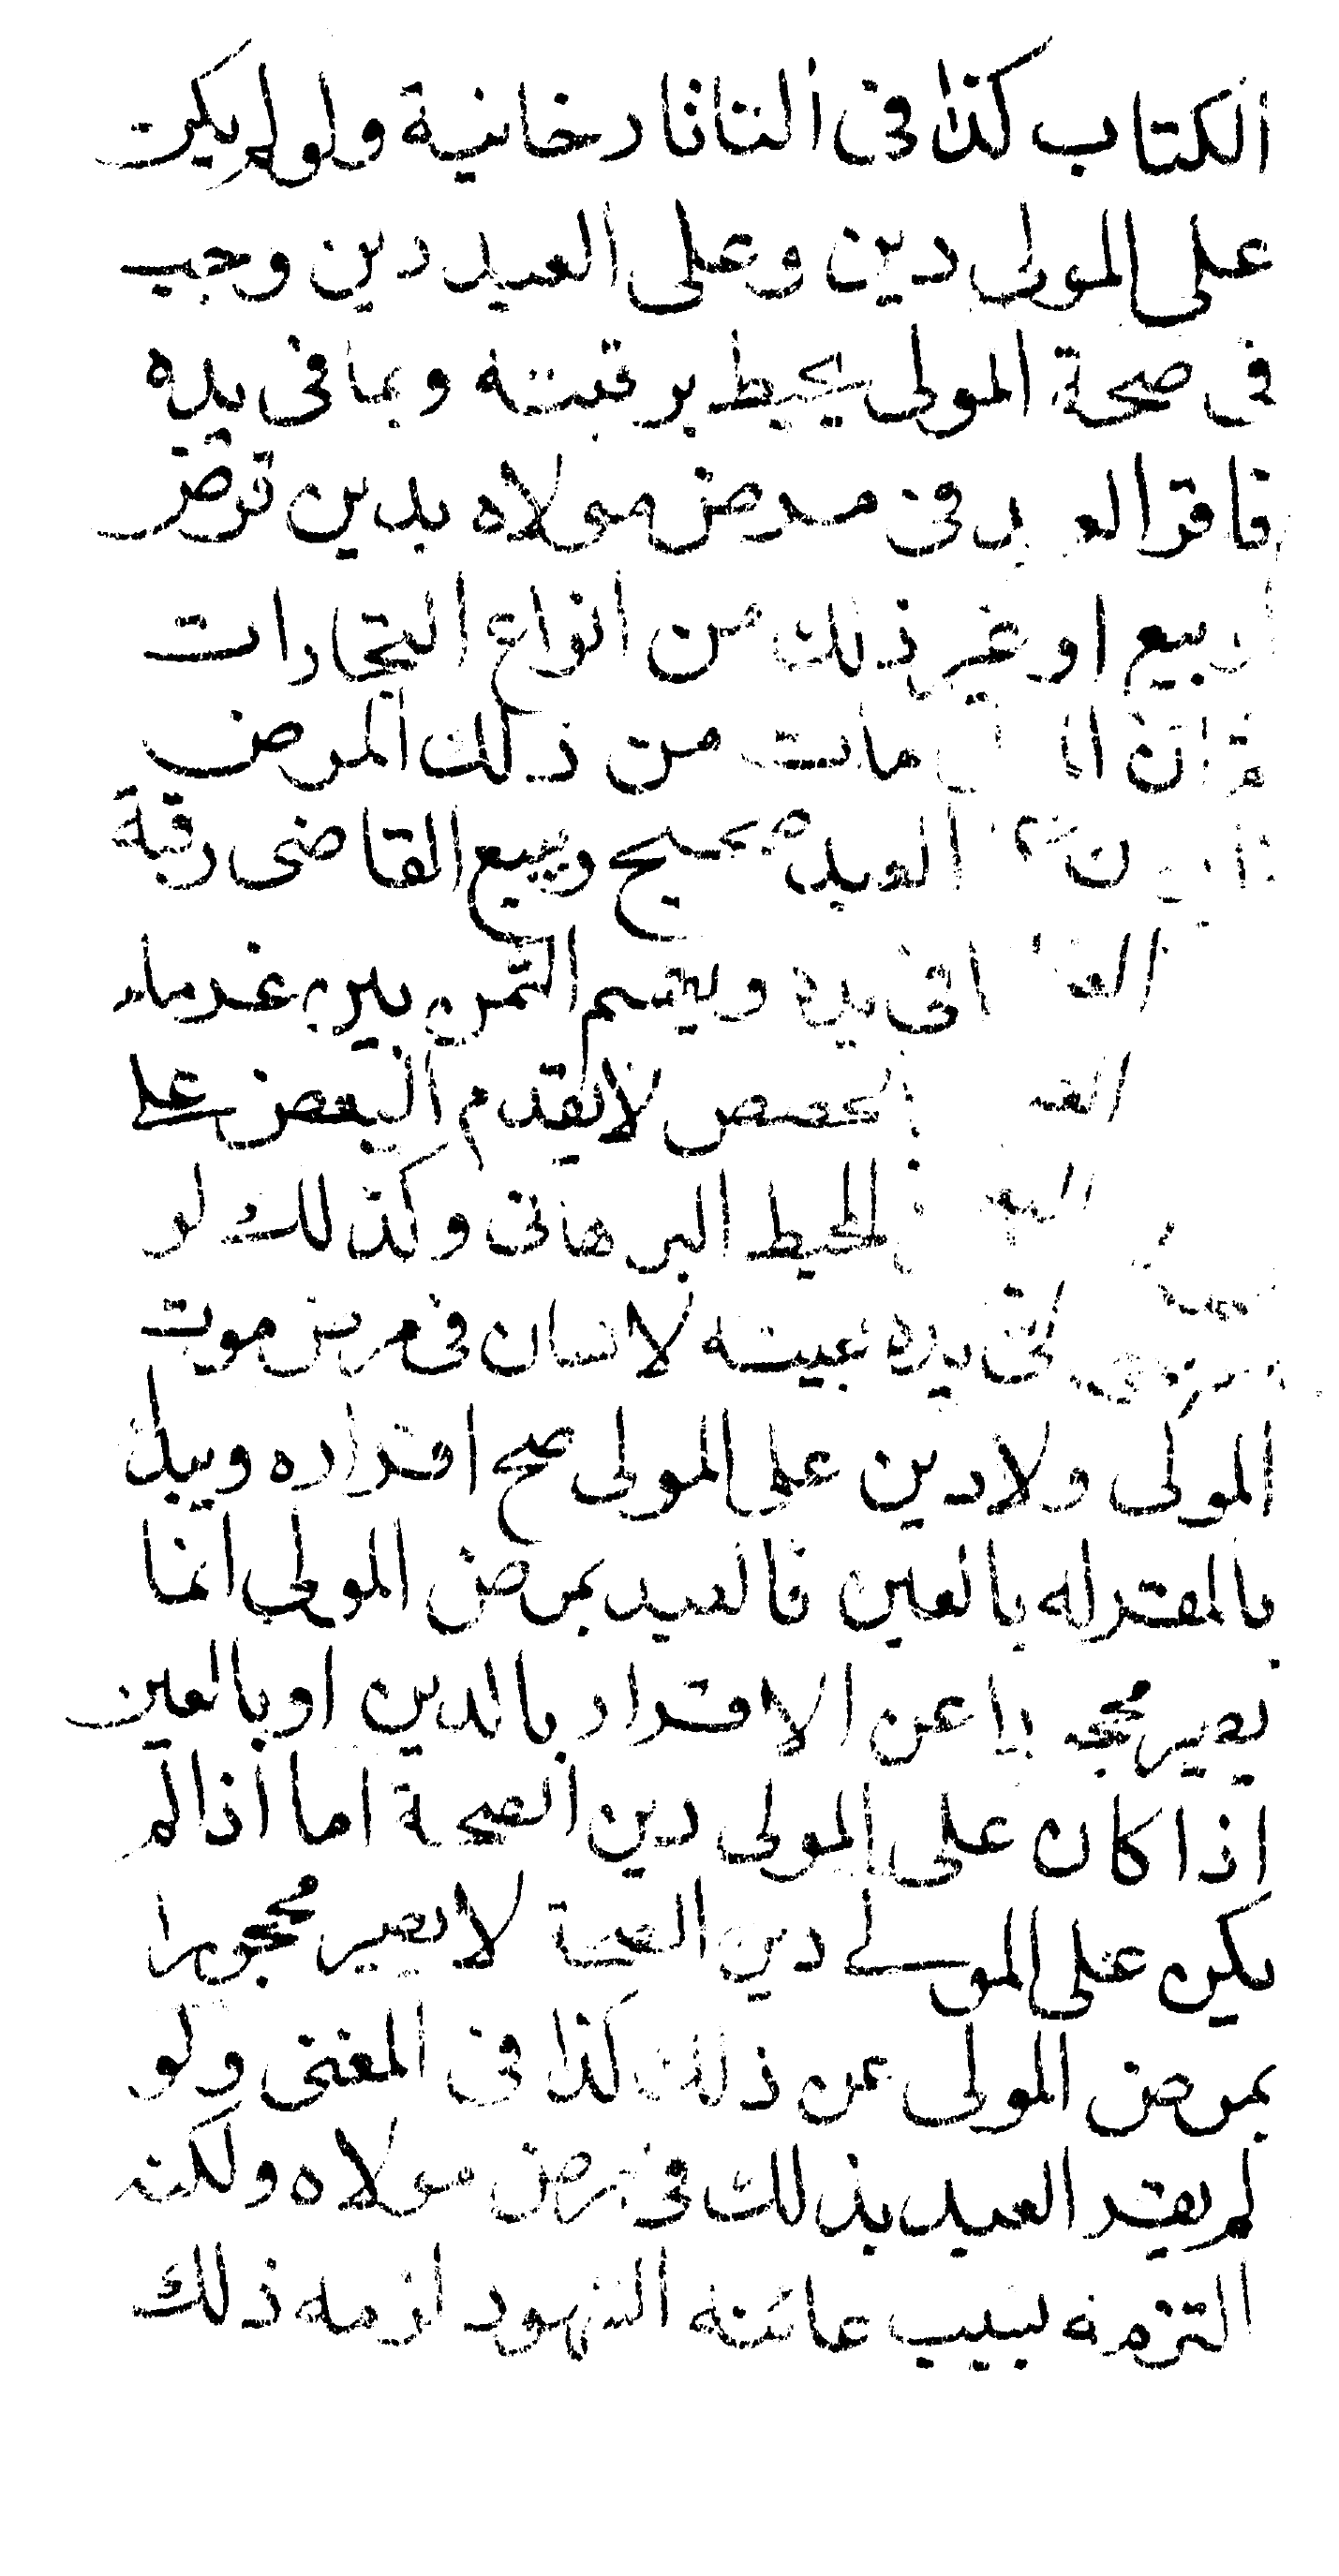 الكتاب كذا فى التاتارخانية ولو لم يكن
على المولى دين وعلى العبد دين وجب
فى صحة المولى يحيط برقبته وبما فى يده
فاقر العبد فى مرض مولاه بدين قرض
بيع او غير ذلك من انواع التجارات
ثم ان مات من ذلك المرض
العبد صحيح ويبيع القاضى رقبة
فى يده ويقسم الثمن بين غرماء
بالحصص لا يقدم البعض على
المحيط البرهانى وكذلك لو
فى يده بعينه لانسان فى مرض موت
المولى ولا دين على المولى صح اقراره ويبدا
بالمقر له بالعين فالعبد بمرض المولى انما
يصير محجورا عن الاقرار بالدين او بالعين
اذا كان على المولى دين الصحة اما اذا لم
يكن على المولى دين الصحة لا يصير محجورا
بمرض المولى عن ذلك كذا فى المغنى ولو
لم يقر العبد بذلك فى مرض مولاه ولكنه
التزمه بسبب عاينه الشهود لزمه ذلك